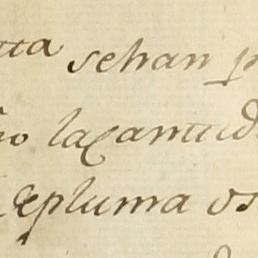 tta sehan p
no lacantid
depluma os